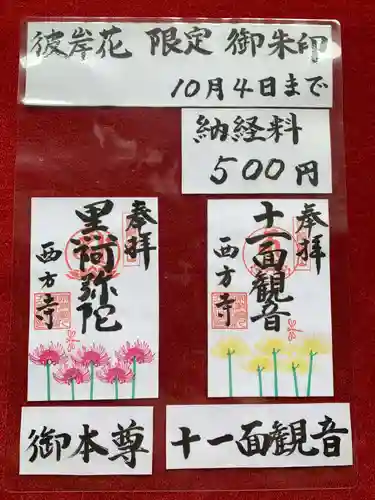 彼岸花 限定 御朱印
10月4日まで
納経料
500円
奉拝
黒阿弥陀
西方寺
奉拝
十一面観音
西方寺
御本尊
十一面観音